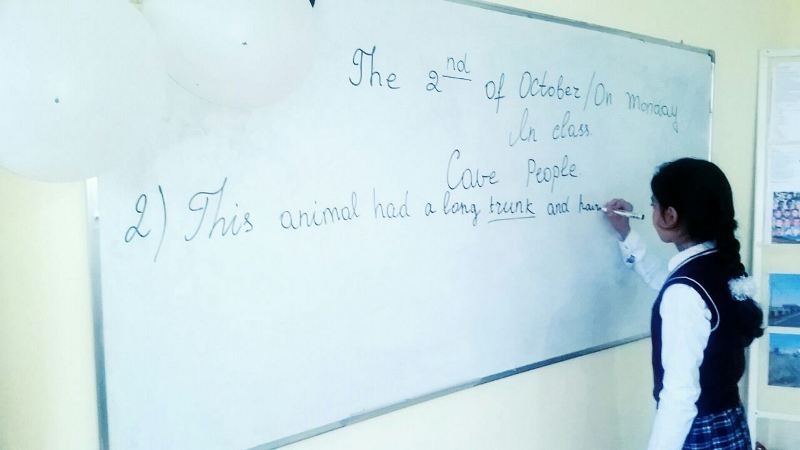 The 2nd of October/On Monday
In class.
Cave People
2) This animal had a long trunk and hair